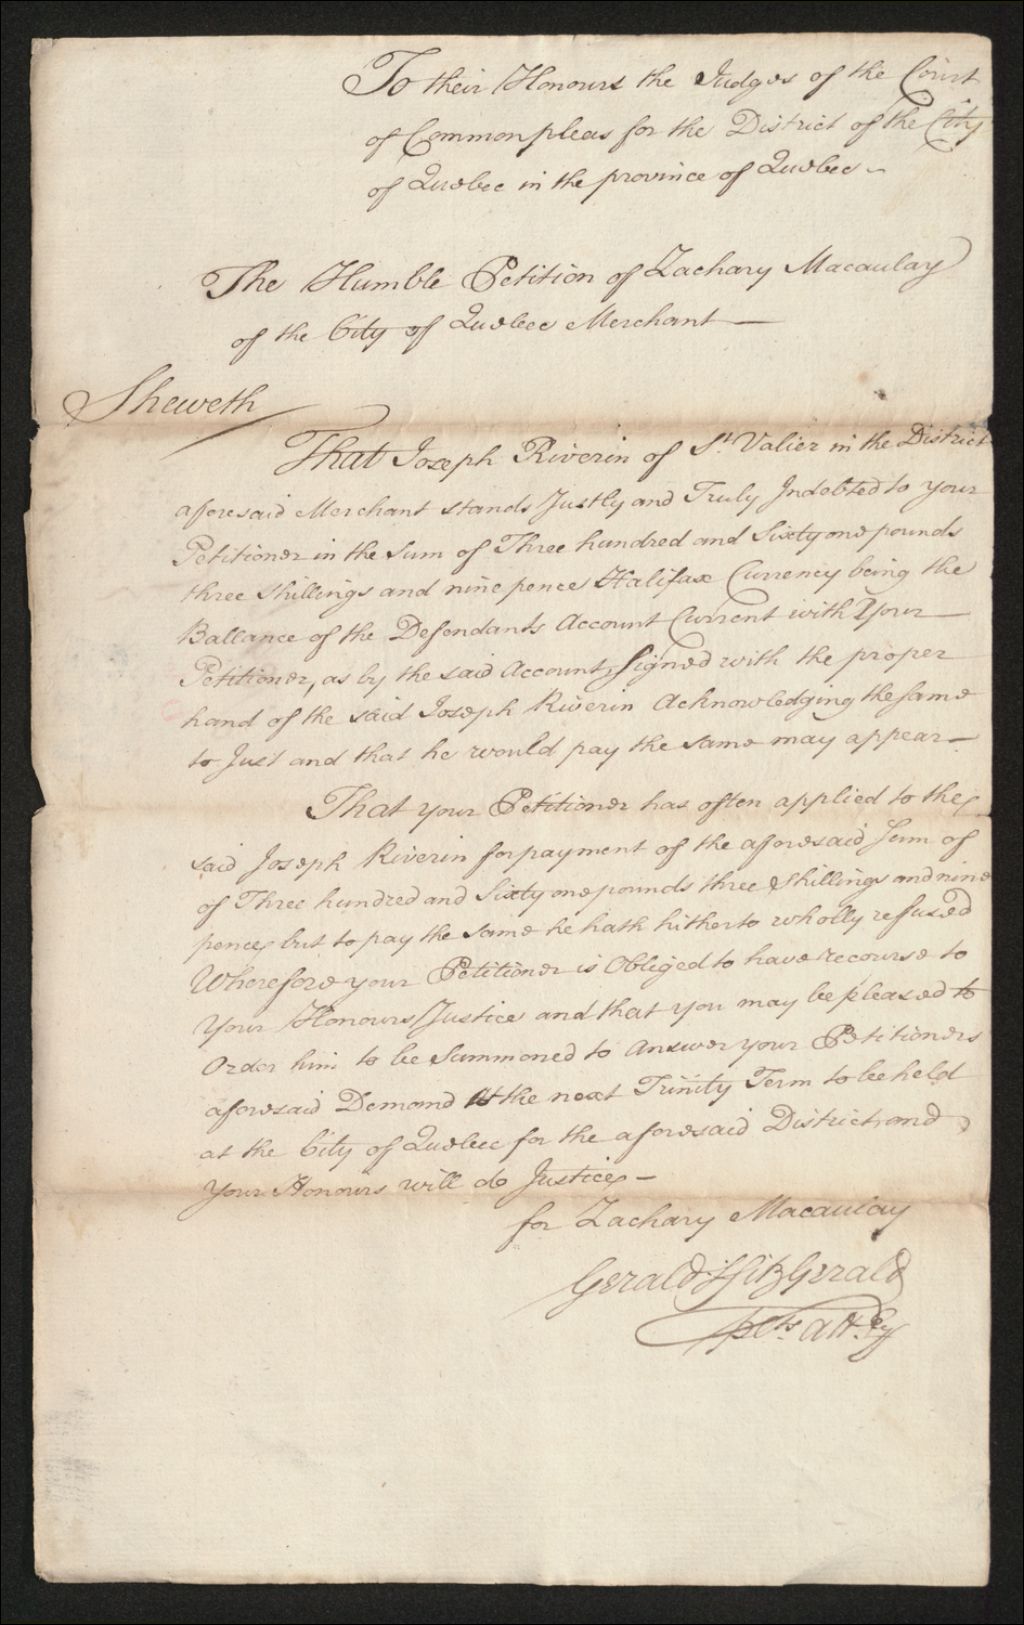 To their Honours the Judges of the Court
of Common pleas for the District of the City
of Quebec in the province of Quebec ~
The Humble Petition of Zachary Macaulay
of the City of Quebec Merchant —
Sheweth
That Joseph Riverin of St. Valier in the District
aforesaid Merchant stands Justly and Truly Indebted to your
Petitioner in the Sum of Three hundred and Sixty one pounds
three shillings and nine pence Halifax Currency being the
Ballance of the Defendants Account Current with Your —
Petitioner, as by the said Account, Signed with the proper
hand of the said Joseph Riverin Acknowledging the same
to Just and that he would pay the same may appear —
That your Petitioner has often applied to the
said Joseph Riverin for payment of the aforesaid Sum of
of Three hundred and Sixty one pounds three shillings and nine
pence, but to pay the same he hath hitherto wholly refused
Wherefore your Petitioner is Obliged to have recourse to
Your Honours Justice and that you may be pleased to
Order him to be Summoned to Answer your Petitioners
aforesaid Demand At the next Trinity Term to be held
at the City of Quebec for the aforesaid District, and
your Honours will do Justice —
for Zachary Macaulay
Gerald FitzGerald
Att.ey